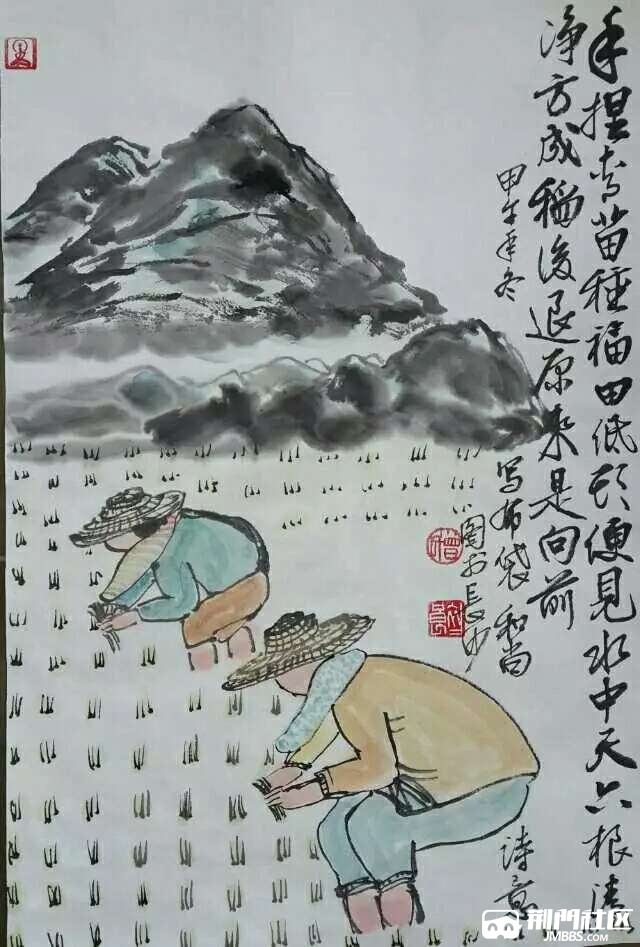 手捏青苗種福田低头便見水中天六根清
净方成稻後退原来是向前
甲午年冬
写布袋和尚
诗意
图於長沙
荆門社区
JMBBS.COM